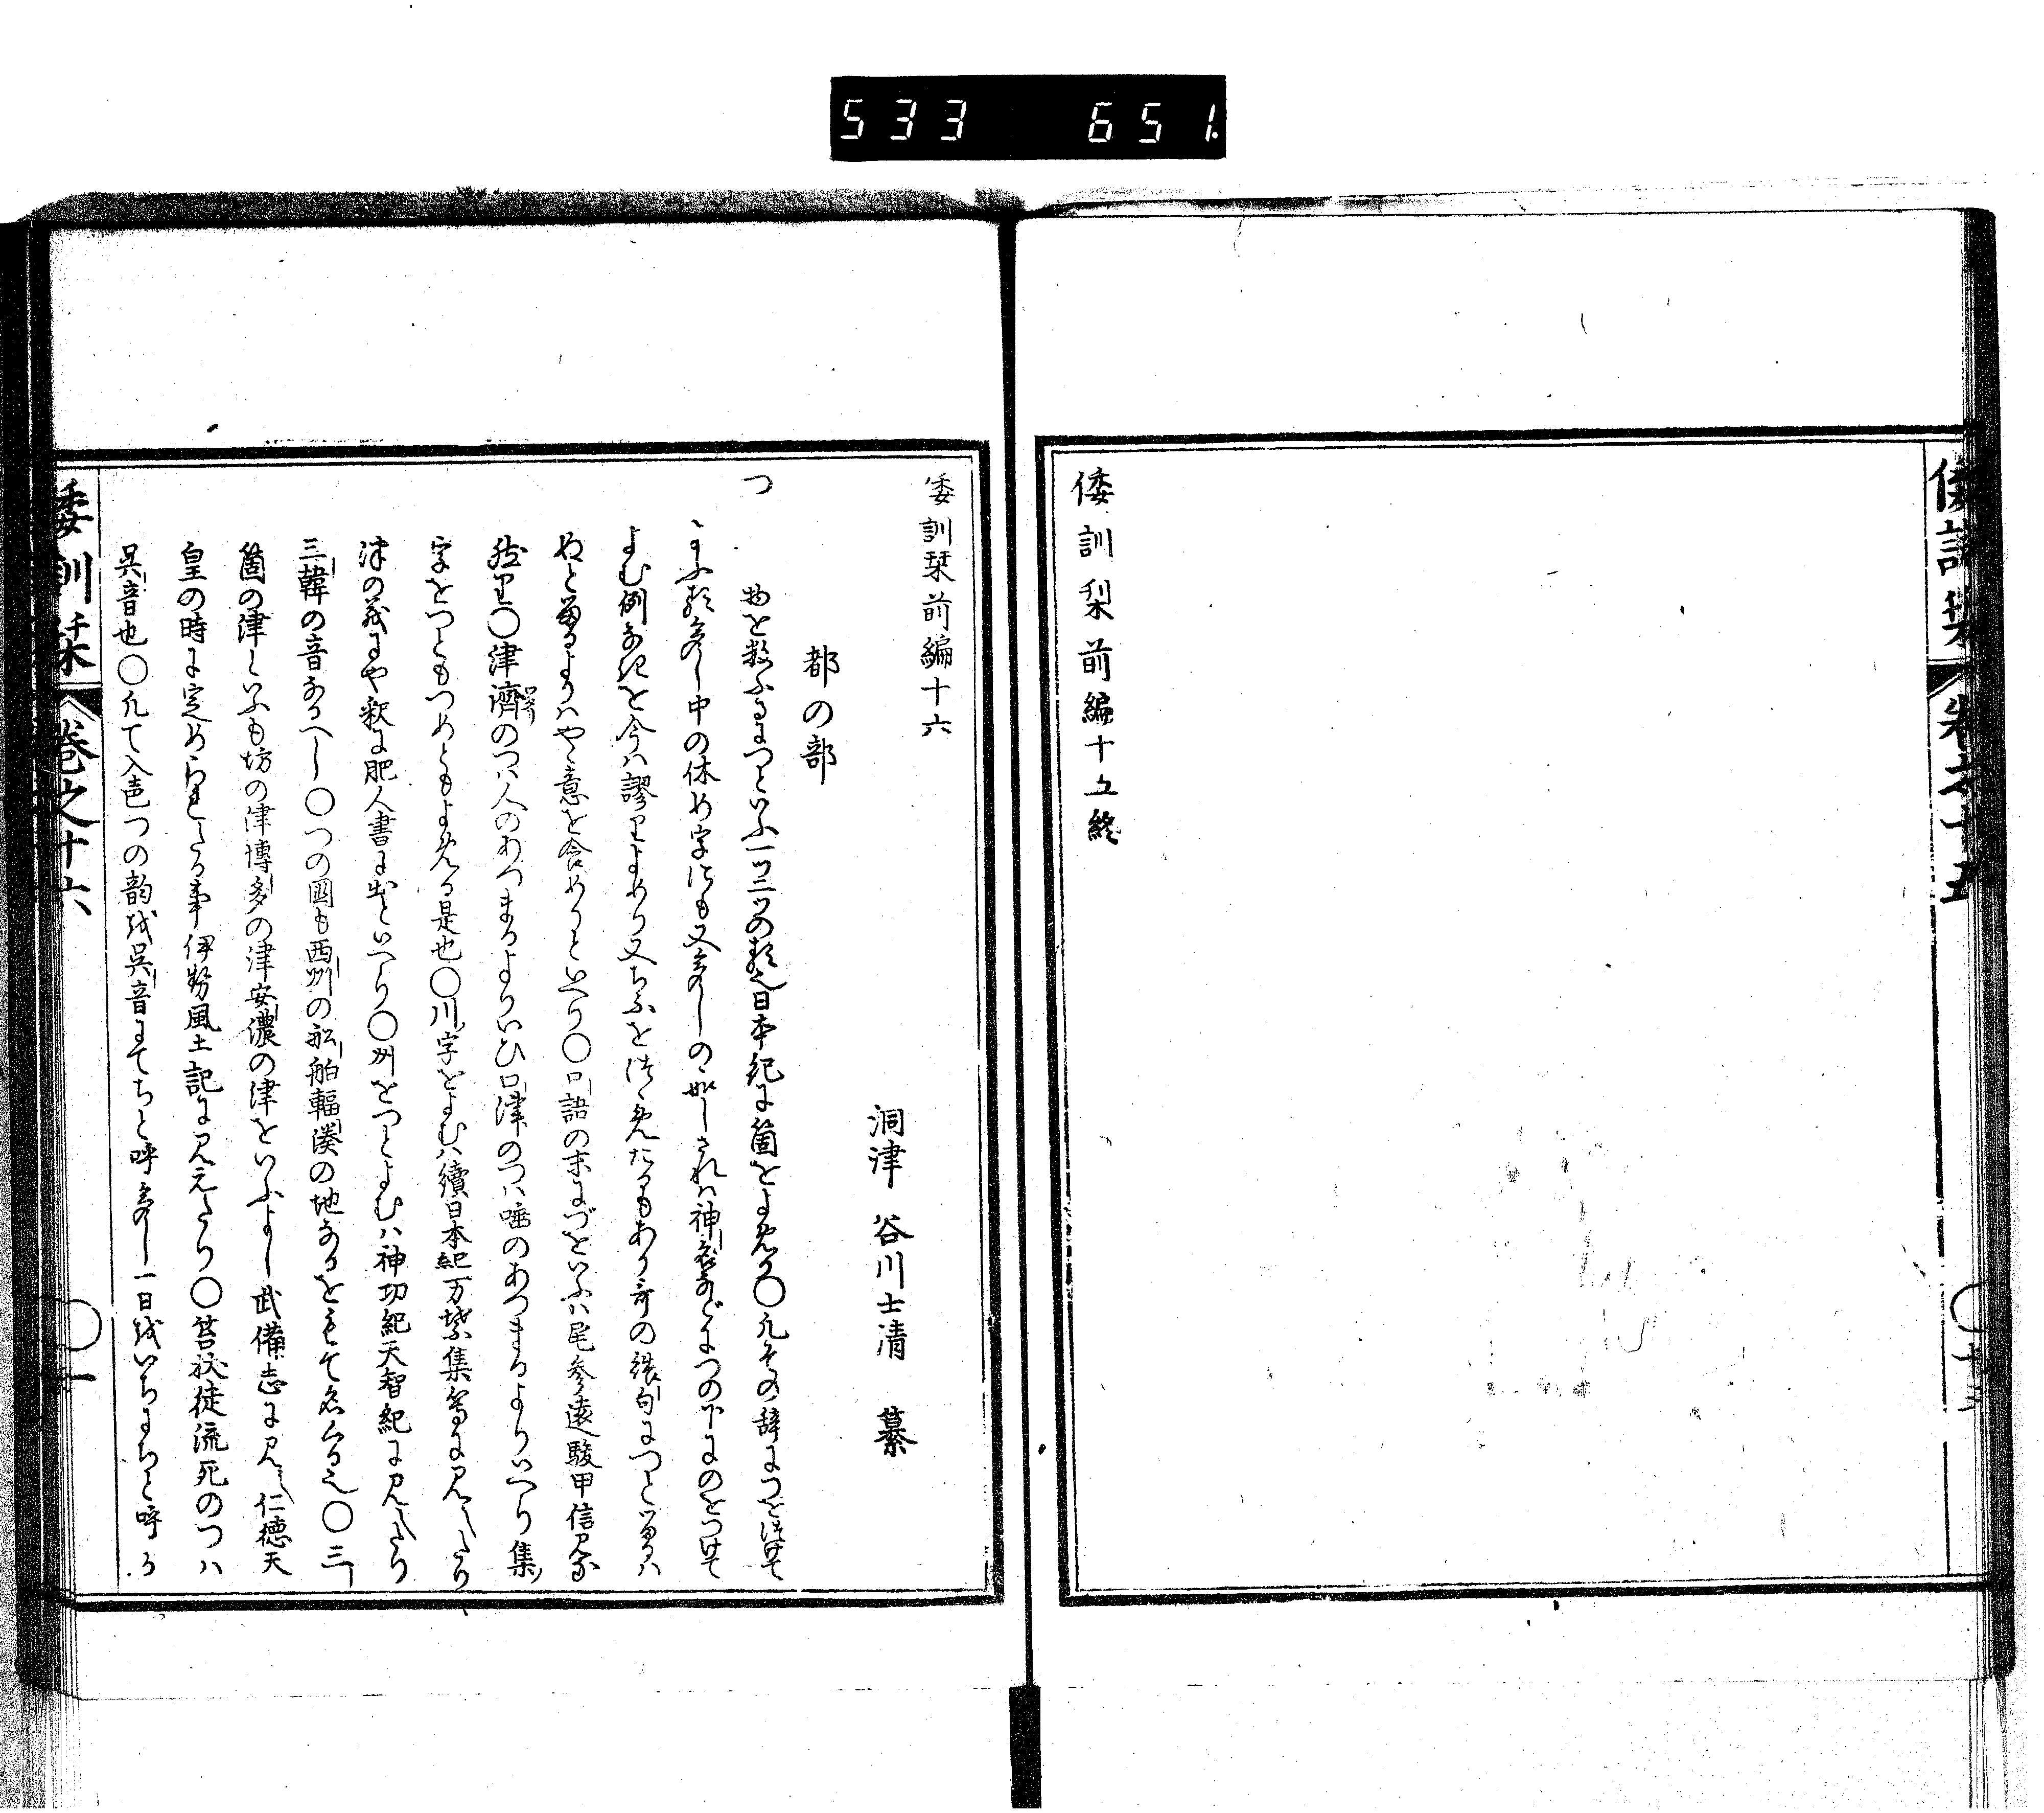 533 651
倭訓栞 卷之十五
十三
倭訓栞前編十五終
倭訓栞前編十六
洞津 谷川士清 纂
都の部
つ
物を数ふるにつといふ一ツ二ツの類也日本紀に箇をよめり〇凡その辞につを付けて
いふ類多し中の休め字にも又多しのゝ如しされハ神衣などにつの下にのをつけて
よむ例なれを今ハ謬りよめり又ちふを
ぬと通るよりハやゝ意を含めりといへり〇口語の末にづをいふハ尾参遠駿甲信
然り〇津濟のつハ人のあつまるよりいひ口津のつハ唾のあつまるよりいへり集
字をつともつめともよめる是也〇川字をよむハ續日本紀万葉集等に見えたり
津の義にや釈に肥人書に出といへり〇州をつとよむハ神功紀天智紀に見えたり
三韓の音なるへし〇つの國も西州の舩舶輻湊の地なるをもて名くる也〇三
箇の津といふも坊の津博多の津安濃の津をいふよし武備志に見ゆ仁徳天
皇の時に定められたる事伊勢風土記に見えたり〇笞杖徒流死のつハ
呉音也〇凡て入声つの韵を呉音にてちと呼多し一日をいちにちと呼か
倭訓栞 卷之十六
一